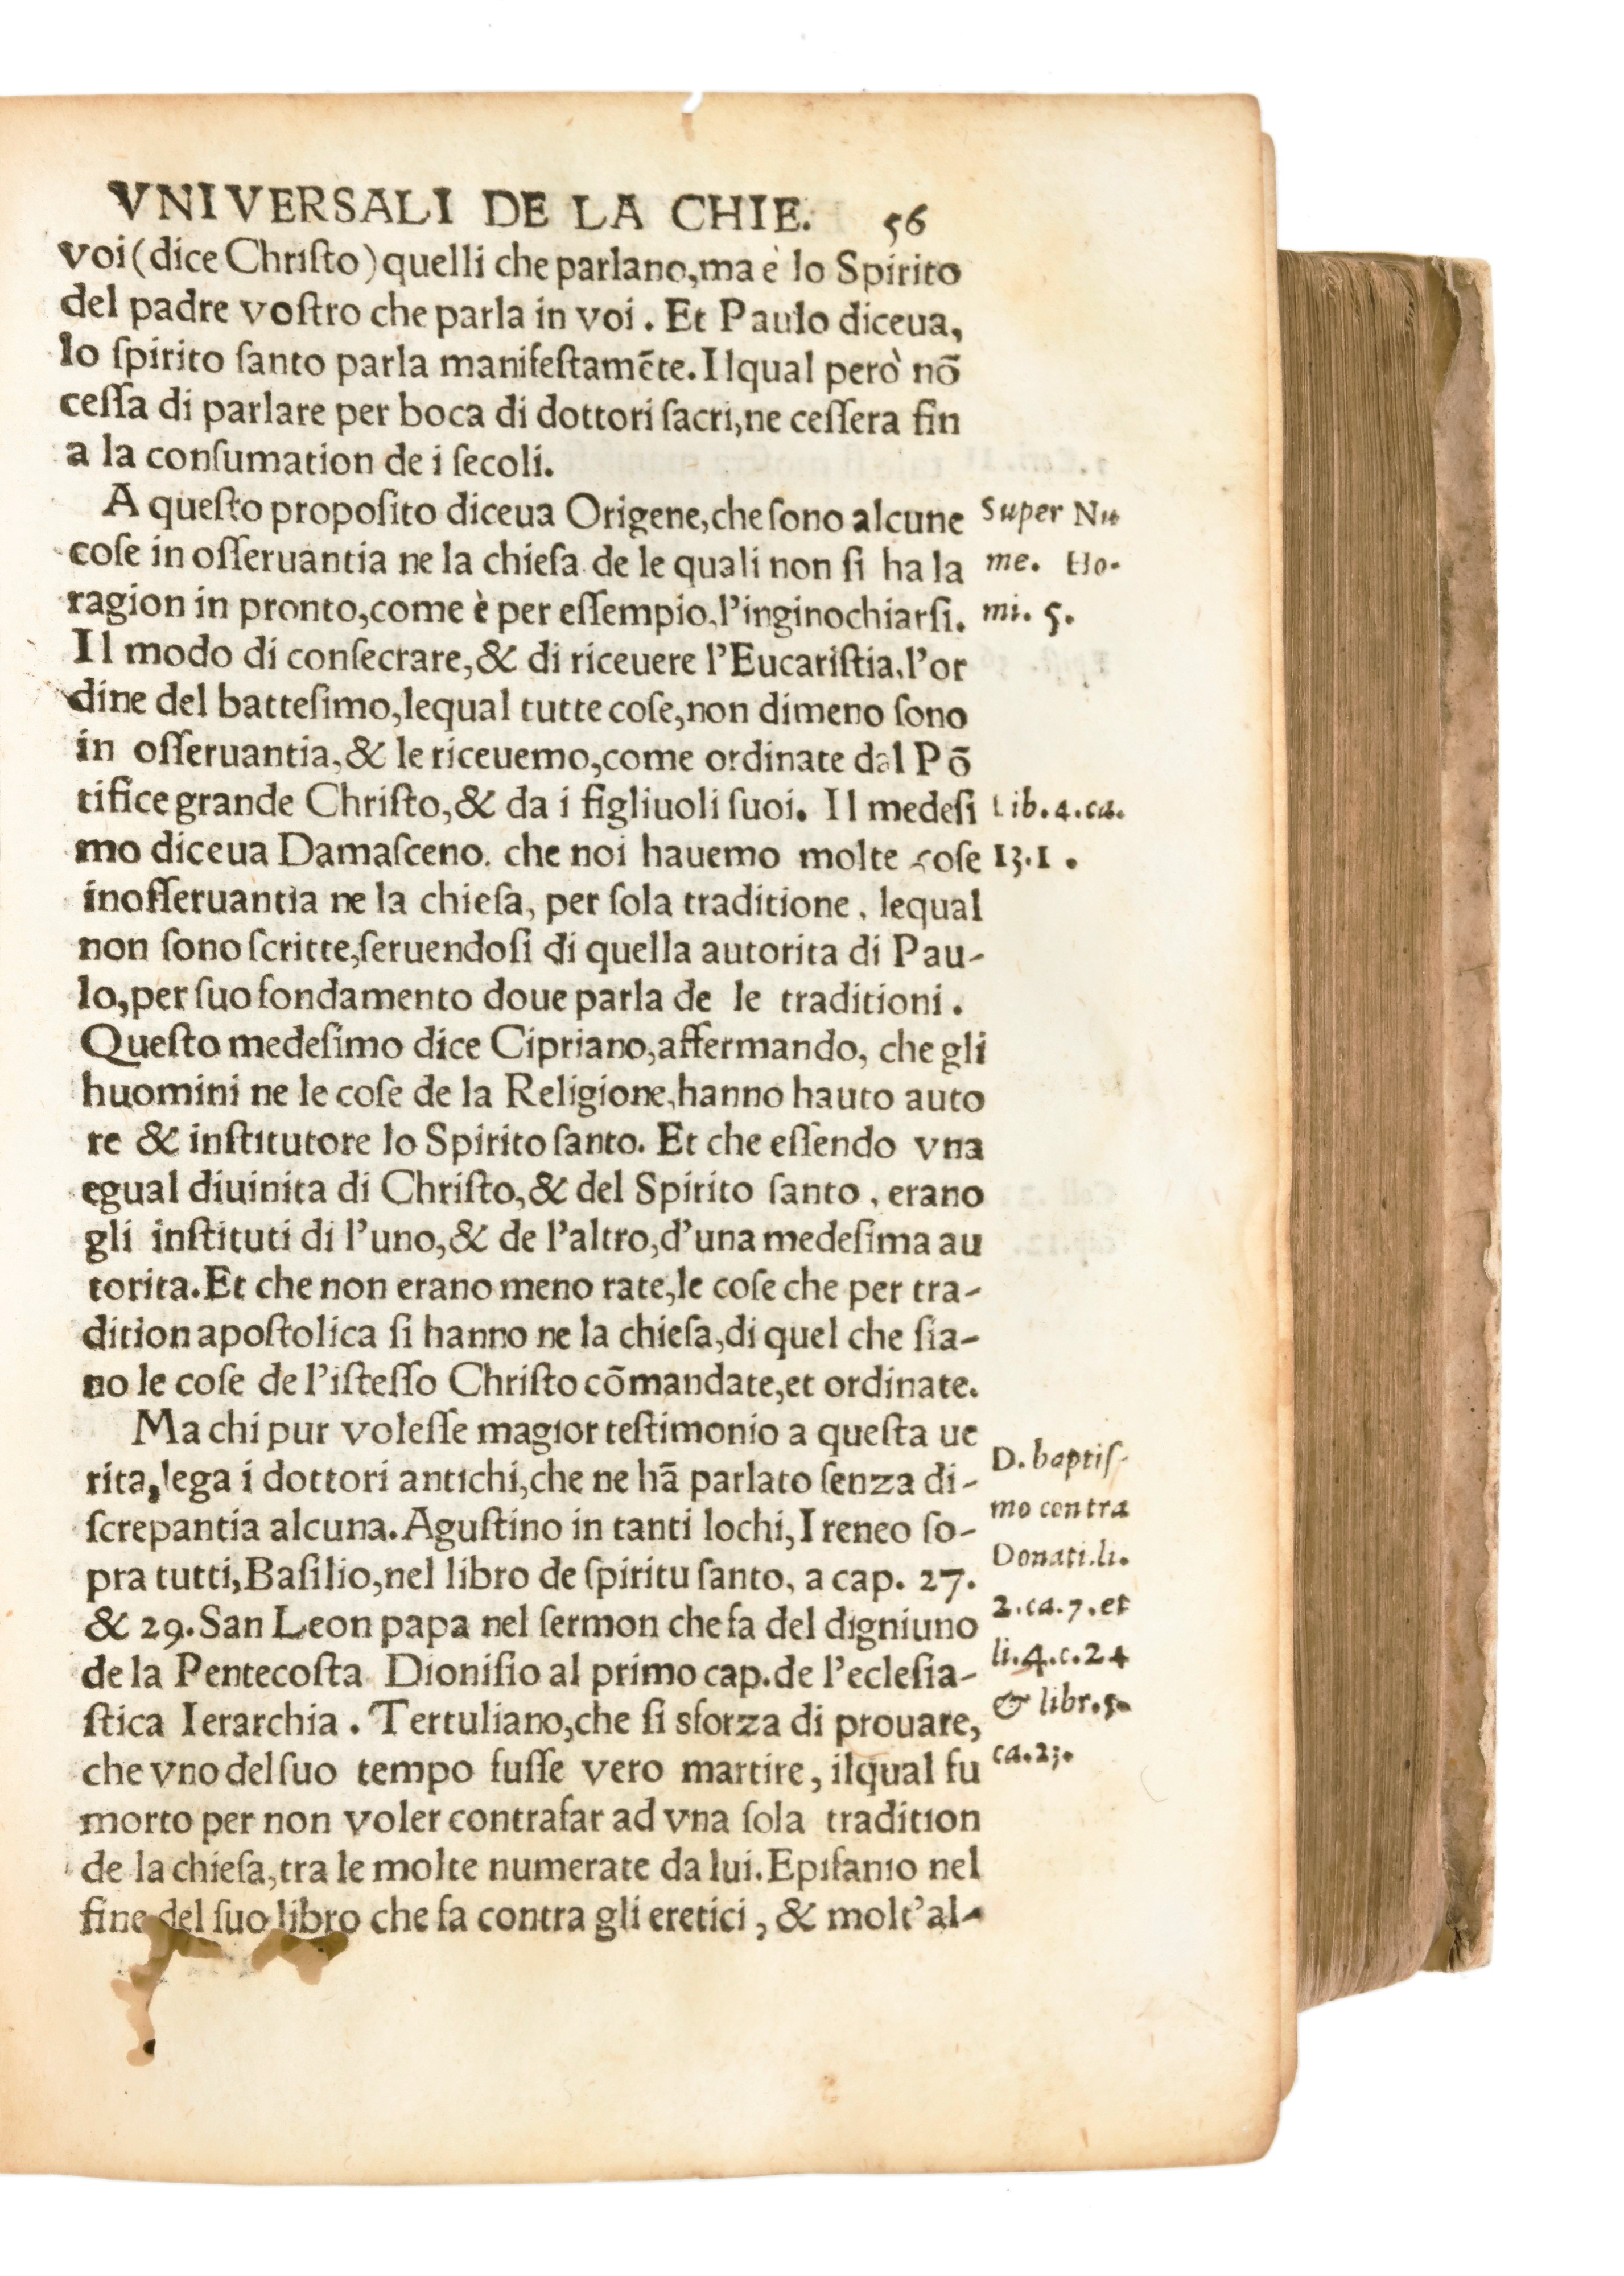 VNIVERSALI DE LA CHIE. 56
voi (dice Chriſto) quelli che parlano, ma è lo Spirito
del padre voſtro che parla in voi. Et Paulo diceua,
lo ſpirito ſanto parla manifeſtamẽte. Ilqual però nõ
ceſſa di parlare per boca di dottori ſacri, ne ceſſera fin
a la conſumation de i ſecoli.
A queſto propoſito diceua Origene, che ſono alcune
coſe in oſſeruantia ne la chieſa de le quali non ſi ha la
ragion in pronto, come è per eſſempio, l'inginochiarſi.
Il modo di conſecrare, & di riceuere l'Eucariſtia, l'or
dine del batteſimo, lequal tutte coſe, non dimeno ſono
in oſſeruantia, & le riceuemo, come ordinate dal Põ
tifice grande Chriſto, & da i figliuoli ſuoi. Il medeſi
mo diceua Damaſceno. che noi hauemo molte coſe
inoſſeruantia ne la chieſa, per ſola traditione, lequal
non ſono ſcritte, ſeruendoſi di quella autorita di Pau-
lo, per ſuo fondamento doue parla de le traditioni.
Queſto medeſimo dice Cipriano, affermando, che gli
huomini ne le coſe de la Religione, hanno hauto auto
re & inſtitutore lo Spirito ſanto. Et che eſſendo vna
egual diuinita di Chriſto, & del Spirito ſanto, erano
gli inſtituti di l'uno, & de l'altro, d'una medeſima au
torita. Et che non erano meno rate, le coſe che per tra-
dition apoſtolica ſi hanno ne la chieſa, di quel che ſia-
no le coſe de l'iſteſſo Chriſto cõmandate, et ordinate.
Ma chi pur voleſſe magior teſtimonio a queſta ue
rita, lega i dottori antichi, che ne hã parlato ſenza di-
ſcrepantia alcuna. Aguſtino in tanti lochi, Ireneo ſo-
pra tutti, Baſilio, nel libro de ſpiritu ſanto, a cap. 27.
& 29. San Leon papa nel ſermon che fa del digniuno
de la Pentecoſta Dioniſio al primo cap. de l'ecleſia-
ſtica Ierarchia. Tertuliano, che ſi sforza di prouare,
che vno del ſuo tempo fuſſe vero martire, ilqual fu
morto per non voler contrafar ad vna ſola tradition
de la chieſa, tra le molte numerate da lui. Epifanio nel
fine del ſuo libro che fa contra gli eretici, & molt'al-
Super Nu
me. Ho-
mi. 5.
Lib. 4. ca.
13. 1.
D. baptiſ-
mo contra
Donati. li.
2. ca. 7. et
li. 4. c. 24
& libr. 5.
ca. 23.